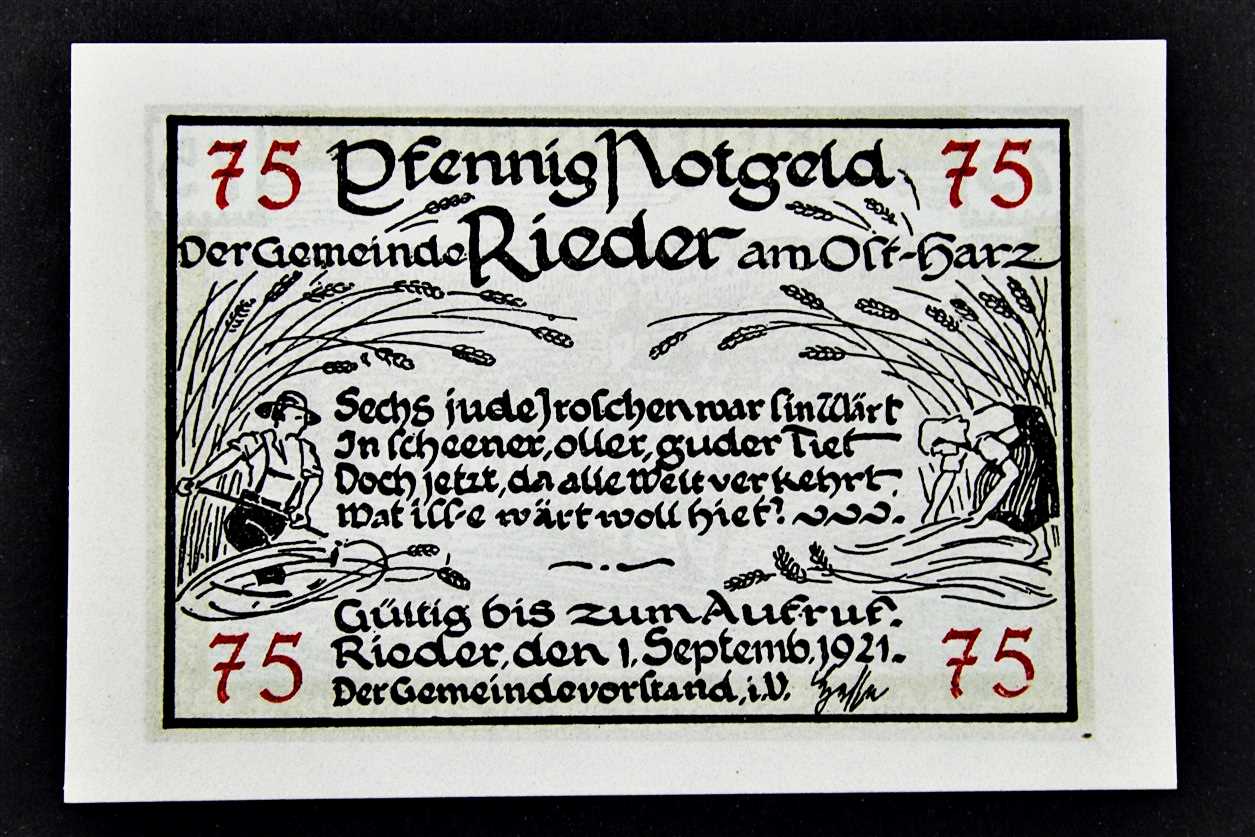 75 Pfennig Notgeld 75
Der Gemeinde Rieder am Ost-Harz
Sechs jude Jroschen war sin Wärt
In scheener, oller, guder Tiet
Doch jetzt, da alle Welt verkehrt,
Wat iss-e wärt woll hiet?
Gültig bis zum Aufruf.
75 Rieder, den 1. Septemb. 1921. 75
Der Gemeindevorstand, i.V. Hesse